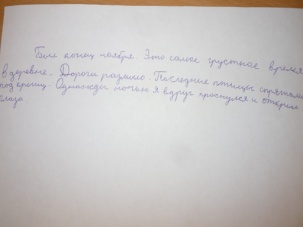 Был конец ноября. Это самое грустное время
в деревне. Дороги размыло. Последние птицы спрятались
под крышу. Однажды ночью я вдруг проснулся и открыл
глаза